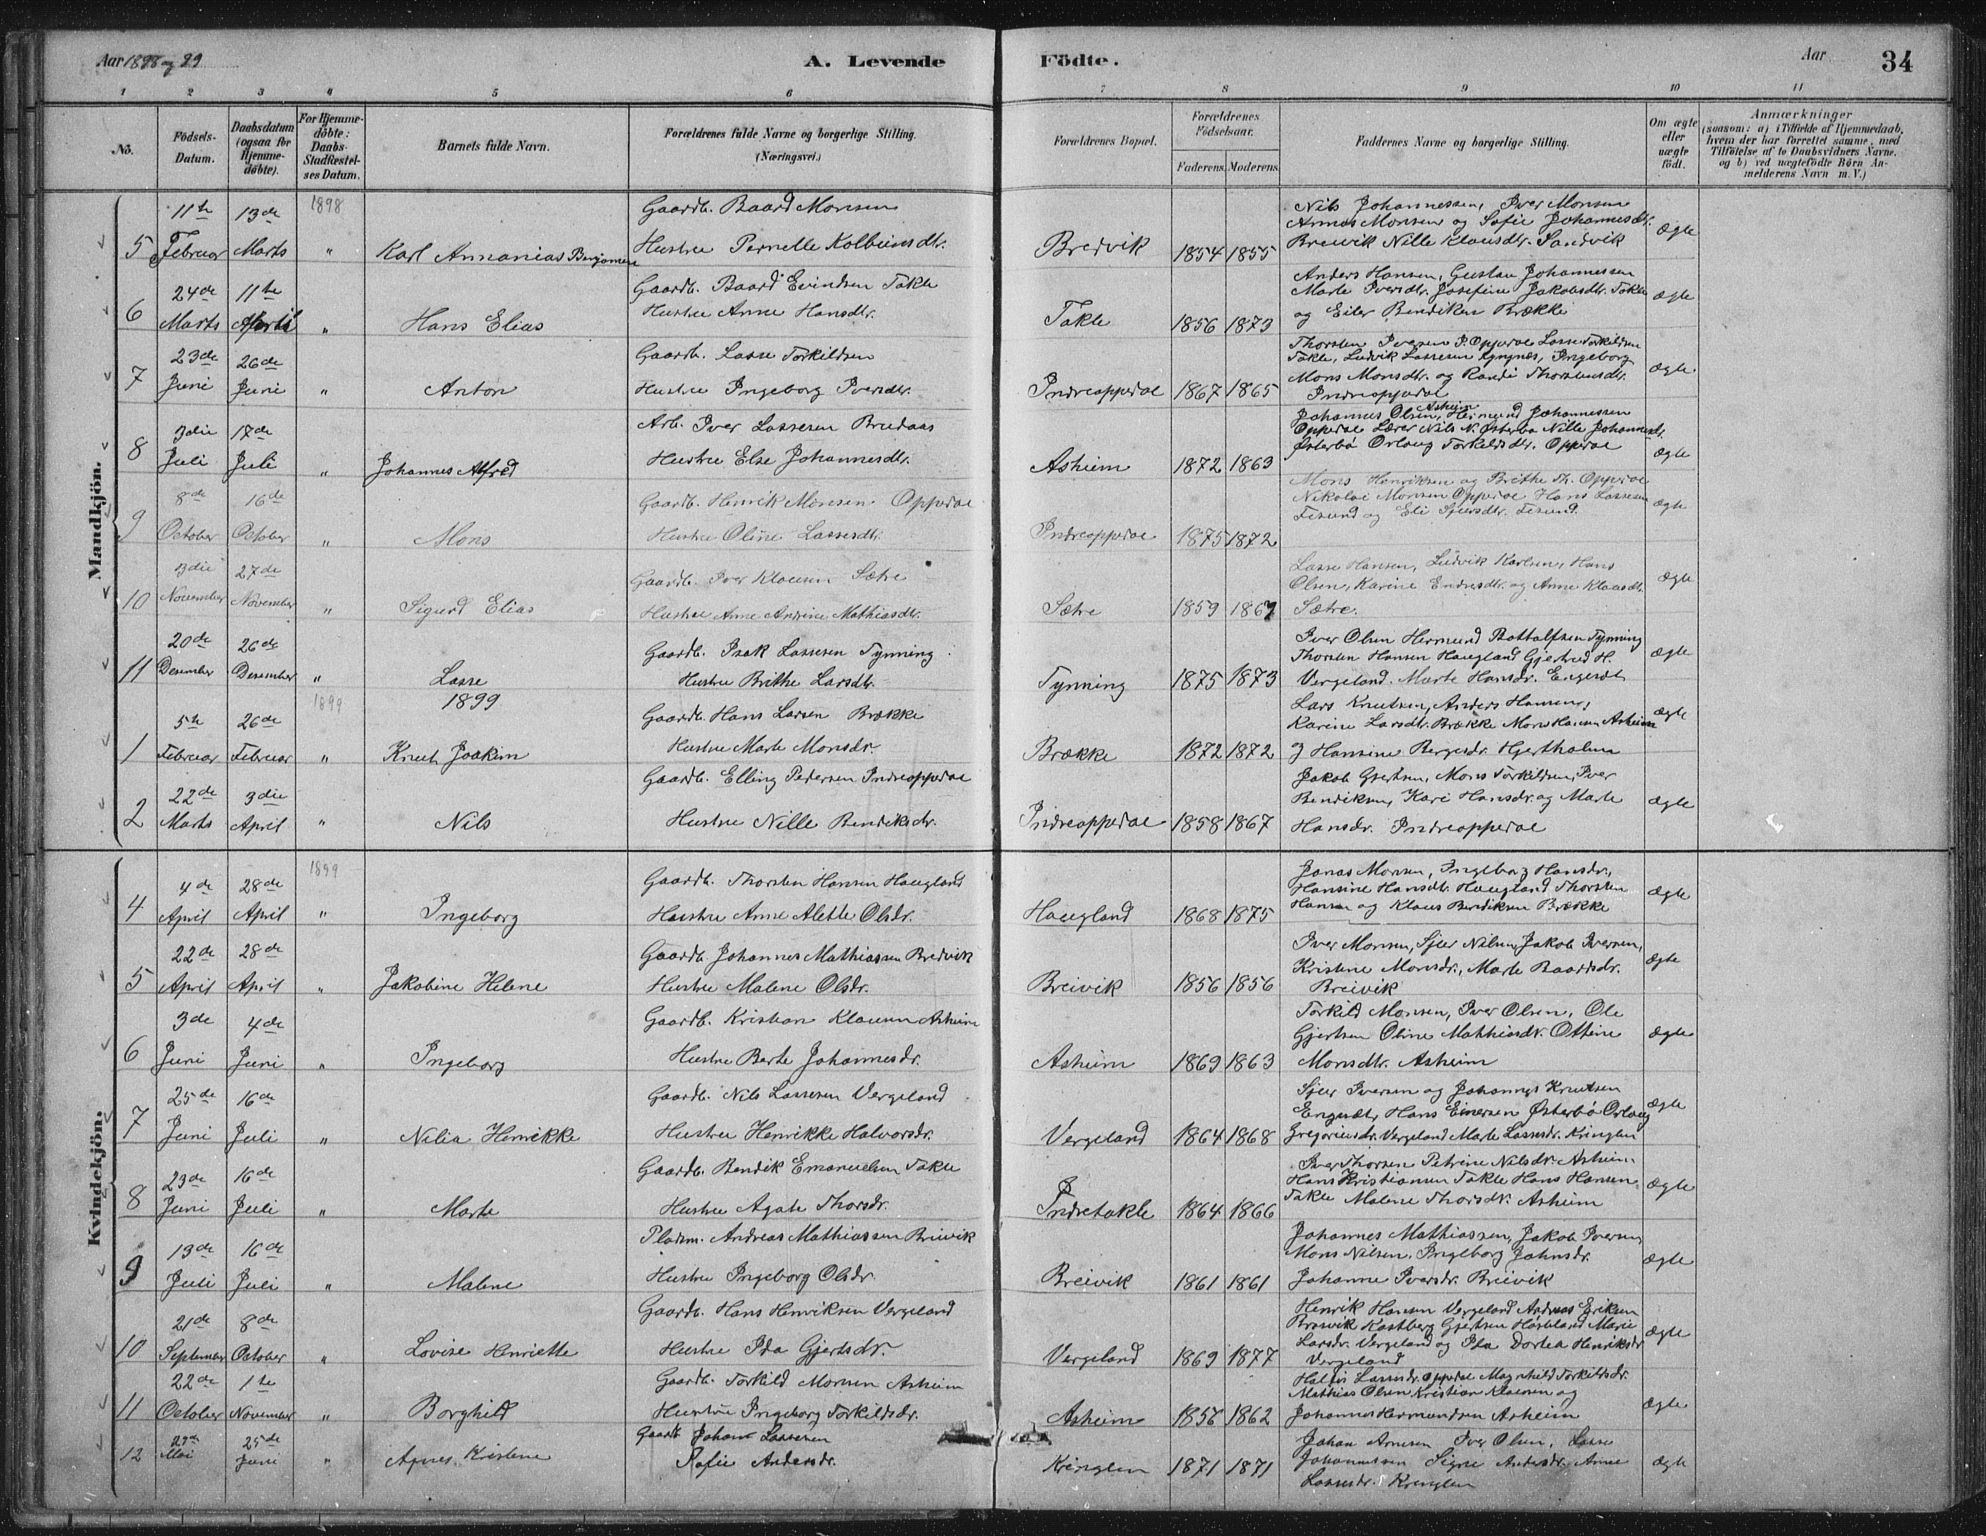 Aar 1898 og 99
A. Levende
Födte.
Aar
34
1 2 3 4 5 6 7 8 9 10 11
No.
Födsels-Datum.
Daabsdatum (ogsaa for Hjemme-döbte).
For Hjemme-döbte: Daabs-Stadfæstel-ses Datum.
Barnets fulde Navn.
Forældrenes fulde Navne og borgerlige Stilling.
(Næringsvei.)
Forældrenes Bopæl.
Forældrenes Födselsaar.
Faderens. Moderens.
Faddernes Navne og borgerlige Stilling.
Om ægte eller uægte födt.
Anmærkninger
(saasom: a) i Tilfælde af Hjemmedaab, hvem der har forrettet samme, med Tilföielse af to Daabsvidners Navne, og b) ved uægtefödte Börn An-melderens Navn m. V.)
Mandkjön.
1898
5 11te Februar 13de Marts " Karl Annanias Benjamin
Gaardb. Baard Monsen
Hustru Pernelle Kolbeinsdtr.
Bredvik 1854 1855
Nils Johannessen, Iver Monsen
Annas Monsen og Sofie Johannesdtr.
Breivik Nille Klausdtr. Sandvik
ægte
6 24de Marts 11te April " Hans Elias
Gaardb. Baard Evindsen Takle
Hustru Anne Hansdtr.
Takle 1856 1873
Anders Hansen, Gustav Johannessen
Marte Iversdtr. Josefine Jakobsdtr. Takle
og Eiler Bendiksen Brække
ægte
7 23de Juni 26de Juni " Anton
Gaardb. Lasse Torkildsen
Hustru Ingeborg Iversdtr.
Indreoppedal 1867 1865
Thorsten Iversen I. Oppedal Lasse Torkildsen
Takle, Ludvik Lassesen Kyngnes, Ingeborg
Mons Monsdtr. og Randi Thorstensdtr.
Indreoppedal
ægte.
8 3die Juli 17de Juli " Johannes Alfred
Arb. Iver Lassesen Bredaas
Hustru Else Johannesdtr.
Asheim 1872 1863
Johannes Olsen, Asheim Hermund Johannessen
Oppedal Lærer Nils N. Østerbø Nille Johannesdtr.
Østerbø Orlaug Torkildsdtr. Oppedal
ægte
9 8de October 16de October " Mons
Gaardb. Henrik Monsen Oppedal
Hustru Oline Lassesdtr.
Indreoppedal 1875 1872
Mons Henriksen og Brithe Th. Oppedal
Nikolai Monsen Oppedal Hans Lassesen
Tesund og Eli Sjursdtr. Tesund.
ægte
10 3die November 27de November " Sigurd Elias
Gaardb. Iver Klausen Sætre
Hustru Anne Andrine Mathiasdtr.
Sætre 1859 1867
Lasse Hansen, Ludvik Karlsen, Hans
Olsen, Karine Endresdtr. og Anne Klausdtr.
Sætre.
ægte
11 20de Desember 26de Desember " Lasse
Gaardb. Isak Lassesen Tynning.
Hustru Brithe Larsdtr.
Tynning 1875 1873
Iver Olsen Hermund Bottolfsen Tynning
Thorsten Hansen Haugland Gjertrud H.
Vergeland. Marte Hansdr. Engesdt
ægte
1899
1899
1 5te Februar 26de Februar " Knut Joakim
Gaardb. Hans Larsen Brække
Hustru Marte Monsdr.
Brække 1872 1872
Lars Knutsen, Anders Hansen,
Karine Larsdtr. Brække Mons Hansen Asheim
og Hansine Bergesdr. Hjertholm
ægte
2 22de Marts 3die April " Nils
Gaardb. Elling Pedersen Indreoppedal
Hustru Nille Bendiksdr.
Indreoppedal 1858 1867
Jakob Gjertsen, Mons Torkildsen, Iver
Bendiksen, Kari Hansdr. og Marte
Hansdr. Indreoppedal
ægte
Kvindekjön.
1899
4 4de April 28de April " Ingeborg
Gaardb. Thorsten Hansen Haugland
Hustru Anne Alette Olsdr.
Haugland 1868 1875
Jonas Monsen, Ingeborg Hansdr.,
Hansine Hansdtr. Haugland Thorsten
Hansen og Klaus Bendiksen Brække
ægte
5 22de April 28de April " Jakobine Helene
Gaardb. Johannes Mathiassen Bredvik
Hustru Malene Olsdr.
Breivik 1856 1856
Iver Monsen, Sjur Nilsen, Jakob Iversen,
Kristine Monsdr., Marte Baardsdr.
Breivik
ægte
6 3de Juni 4de Juni " Ingeborg
Gaardb. Kristian Klausen Asheim
Hustru Berte Johannesdr.
Asheim 1869 1863
Torkild Monsen, Iver Olsen, Ole
Gjertsen Oline Mathiasdr. Ottine
Monsdtr. Asheim
ægte
7 25de Juni 16de Juli " Nilia Henrikke
Gaardb. Nils Lassesen Vergeland
Hustru Henrikke Halvorsdr.
Vergeland 1864 1868
Sjur Iversen og Johannes Knutsen
Engesdt, Hans Einersen Østerbø Orlaug
Gregoriusdr. Vergeland Marte Lassesdr. Kringlen
ægte
8 23de Juni 16de Juli " Marte
Gaardb. Bendik Emanuelsen Takle
Hustru Agate Thorsdr.
Indretakle 1864 1866
Iver Thorsen Petrine Nilsdr. Asheim
Hans Kristiansen Takle Hans Hansen
Takle Malene Thorsdr. Asheim
ægte
9 13de Juli 16de Juli " Malene
Pladsm. Andreas Mathiassen Breivik
Hustru Ingeborg Olsdr.
Breivik 1861 1861
Johannes Mathiassen, Jakob Iversen
Mons Nilsen, Ingeborg Johnsdr.
Johanne Iversdr. Breivik
ægte
10 21de September 8de October " Lovise Henriette
Gaardb. Hans Henriksen Vergeland
Hustru Ida Gjertsdr.
Vergeland 1869 1877
Henrik Hansen Vergeland Andreas Eriksen
Brosvik Kastberg Gjertsen Høsteland Marie
Larsdr. Vergeland og Ida Dortea Henriksdr
Vergeland
ægte
11 22de October 1te November " Borghild
Gaardb. Torkild Monsen Asheim
Hustru Ingeborg Torkildsdr.
Asheim 1856 1862
Lassesdr. Oppedal Magnhild Torkildsdr.
Mathias Olsen Kristian Klausen og
Johannes Hermundsen Asheim
ægte
12 Mai 25de Juni " Agnes Kristine
Gaardb. Johan Lassesen
Sofie Andersdr.
Kringlen 1871 1871
Johan Arnesen Iver Olsen, Lasse
Johannessen Signe Andersdr. Anne
Lassesdr. Kringlen
ægte